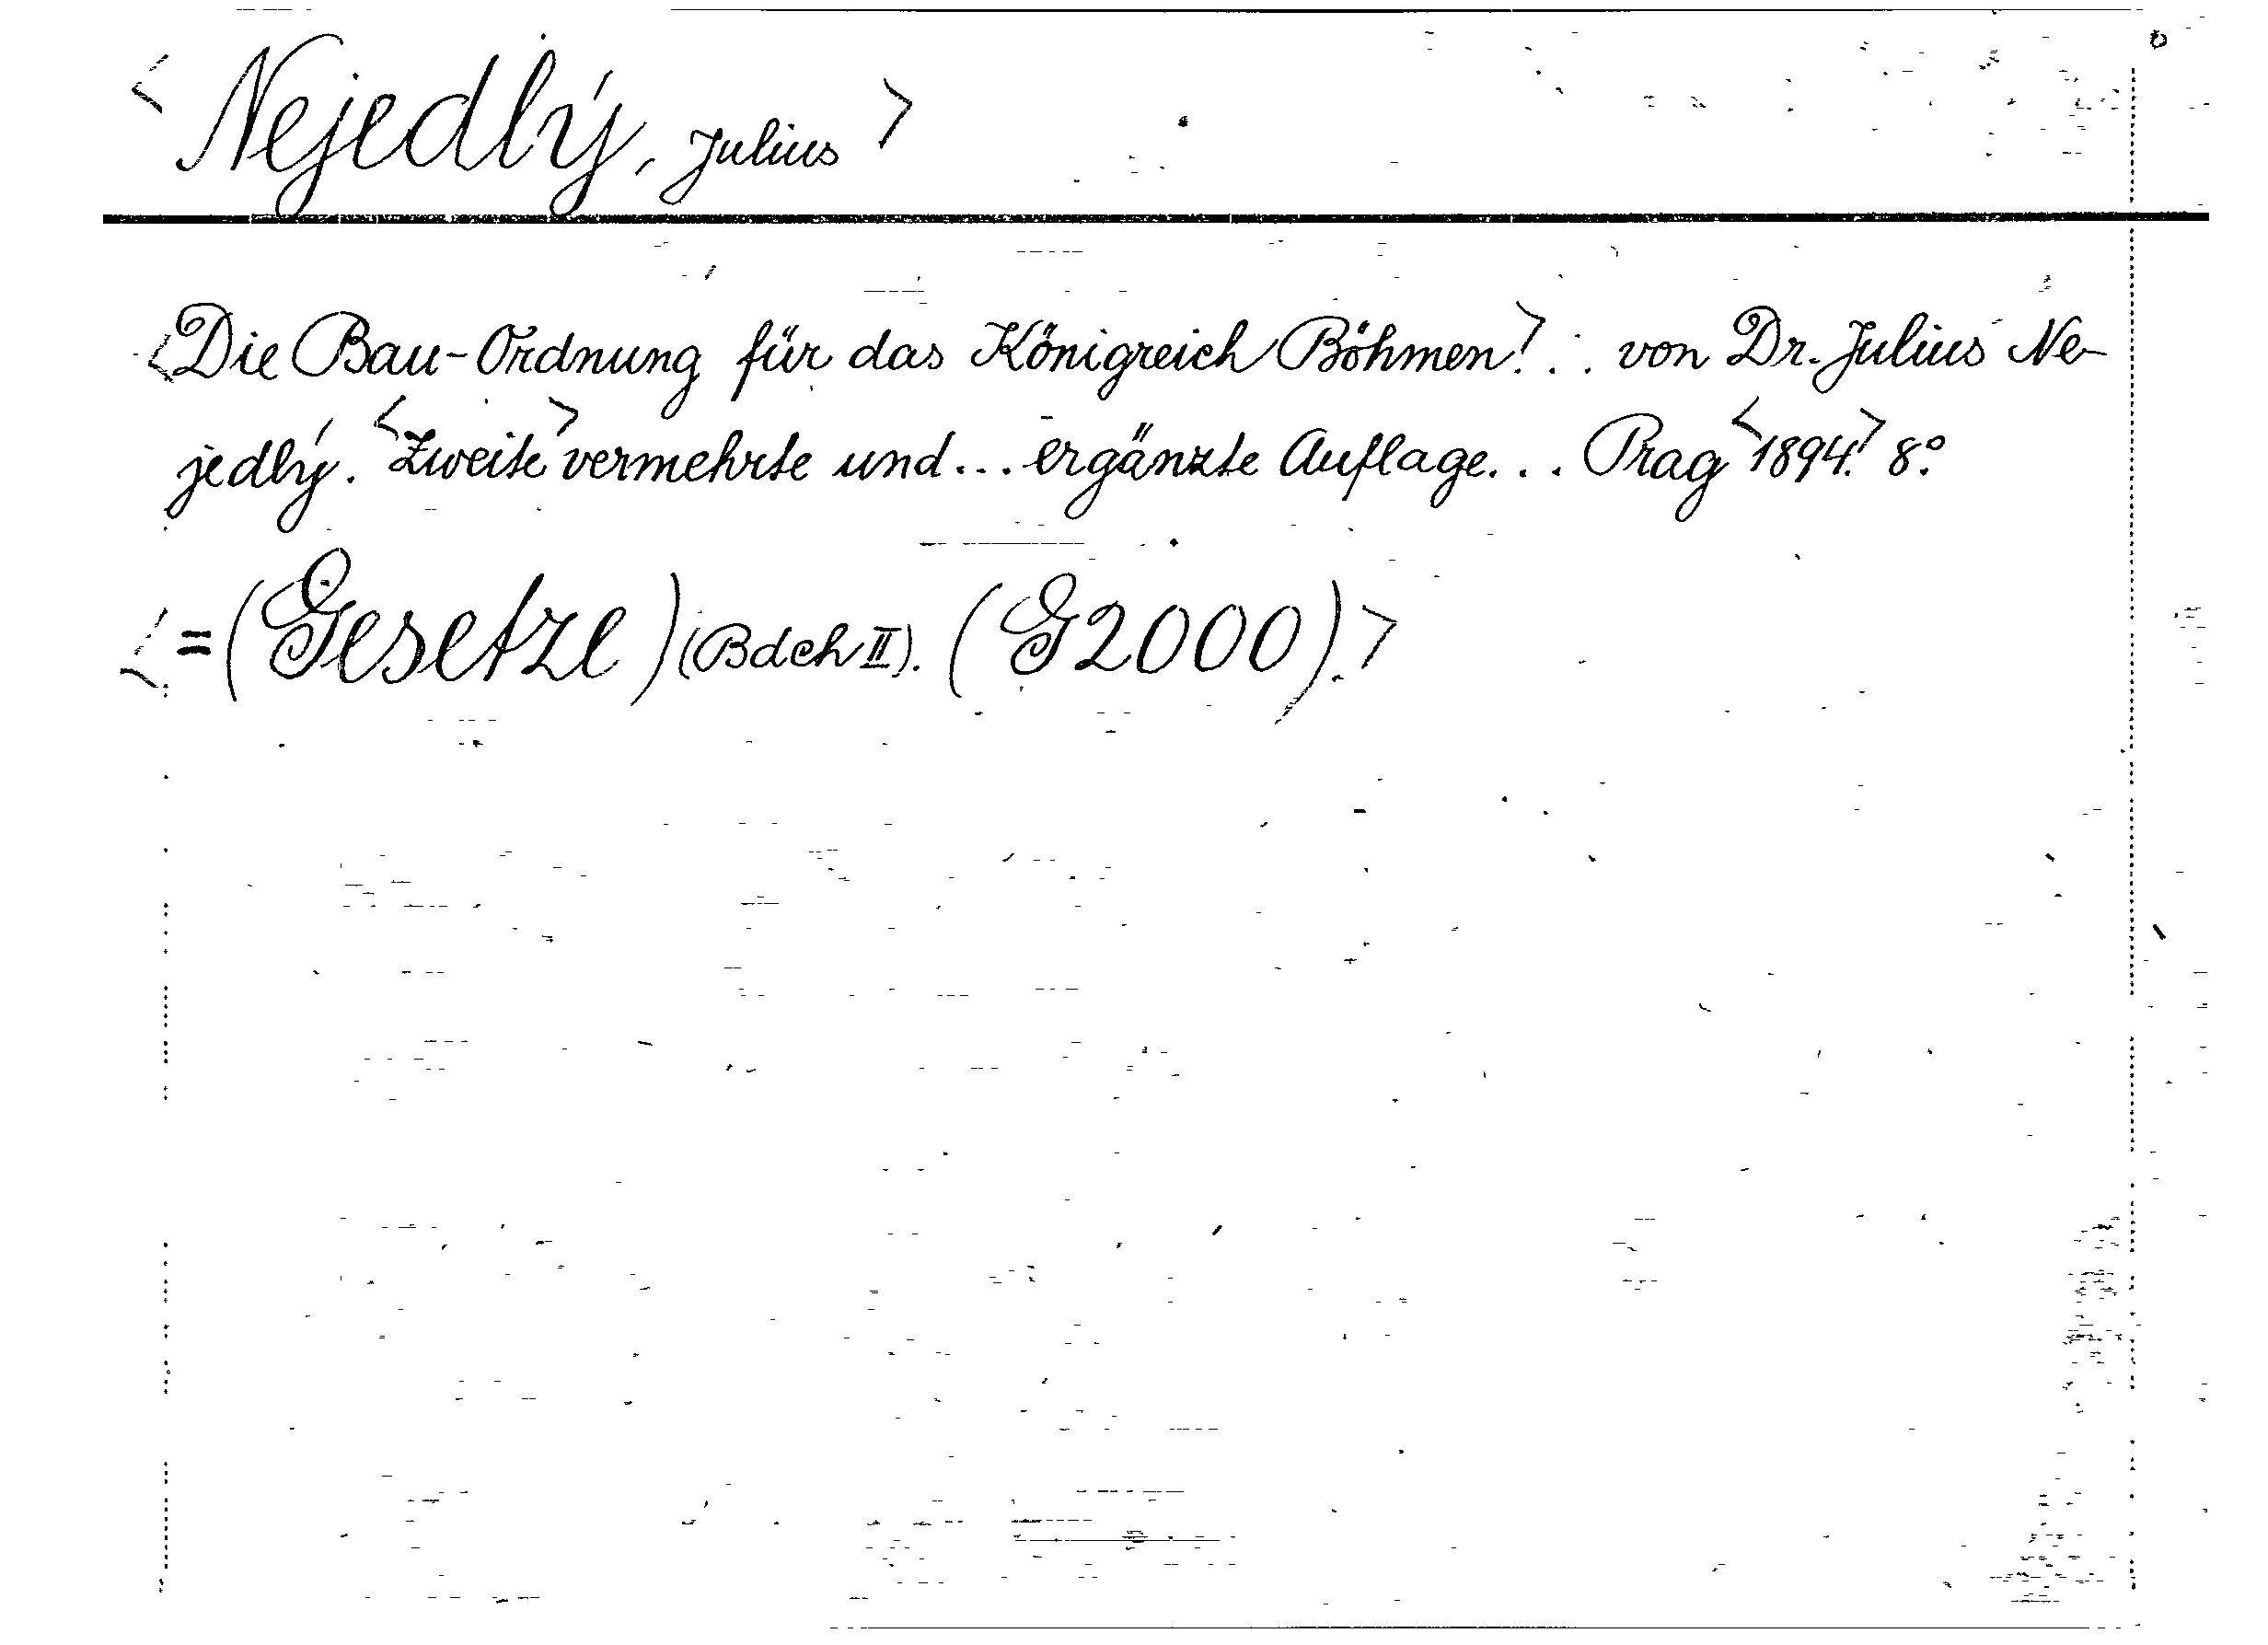 < Nejedlý, Julius >
<Die Bau-Ordnung für das Königreich Böhmen.> . . von Dr. Julius Ne-
jedlý. <Zweite> vermehrte und... ergänzte Auflage... Prag <1894.> 8.º
<=(Gesetze) (Bdch II). (G2000).>